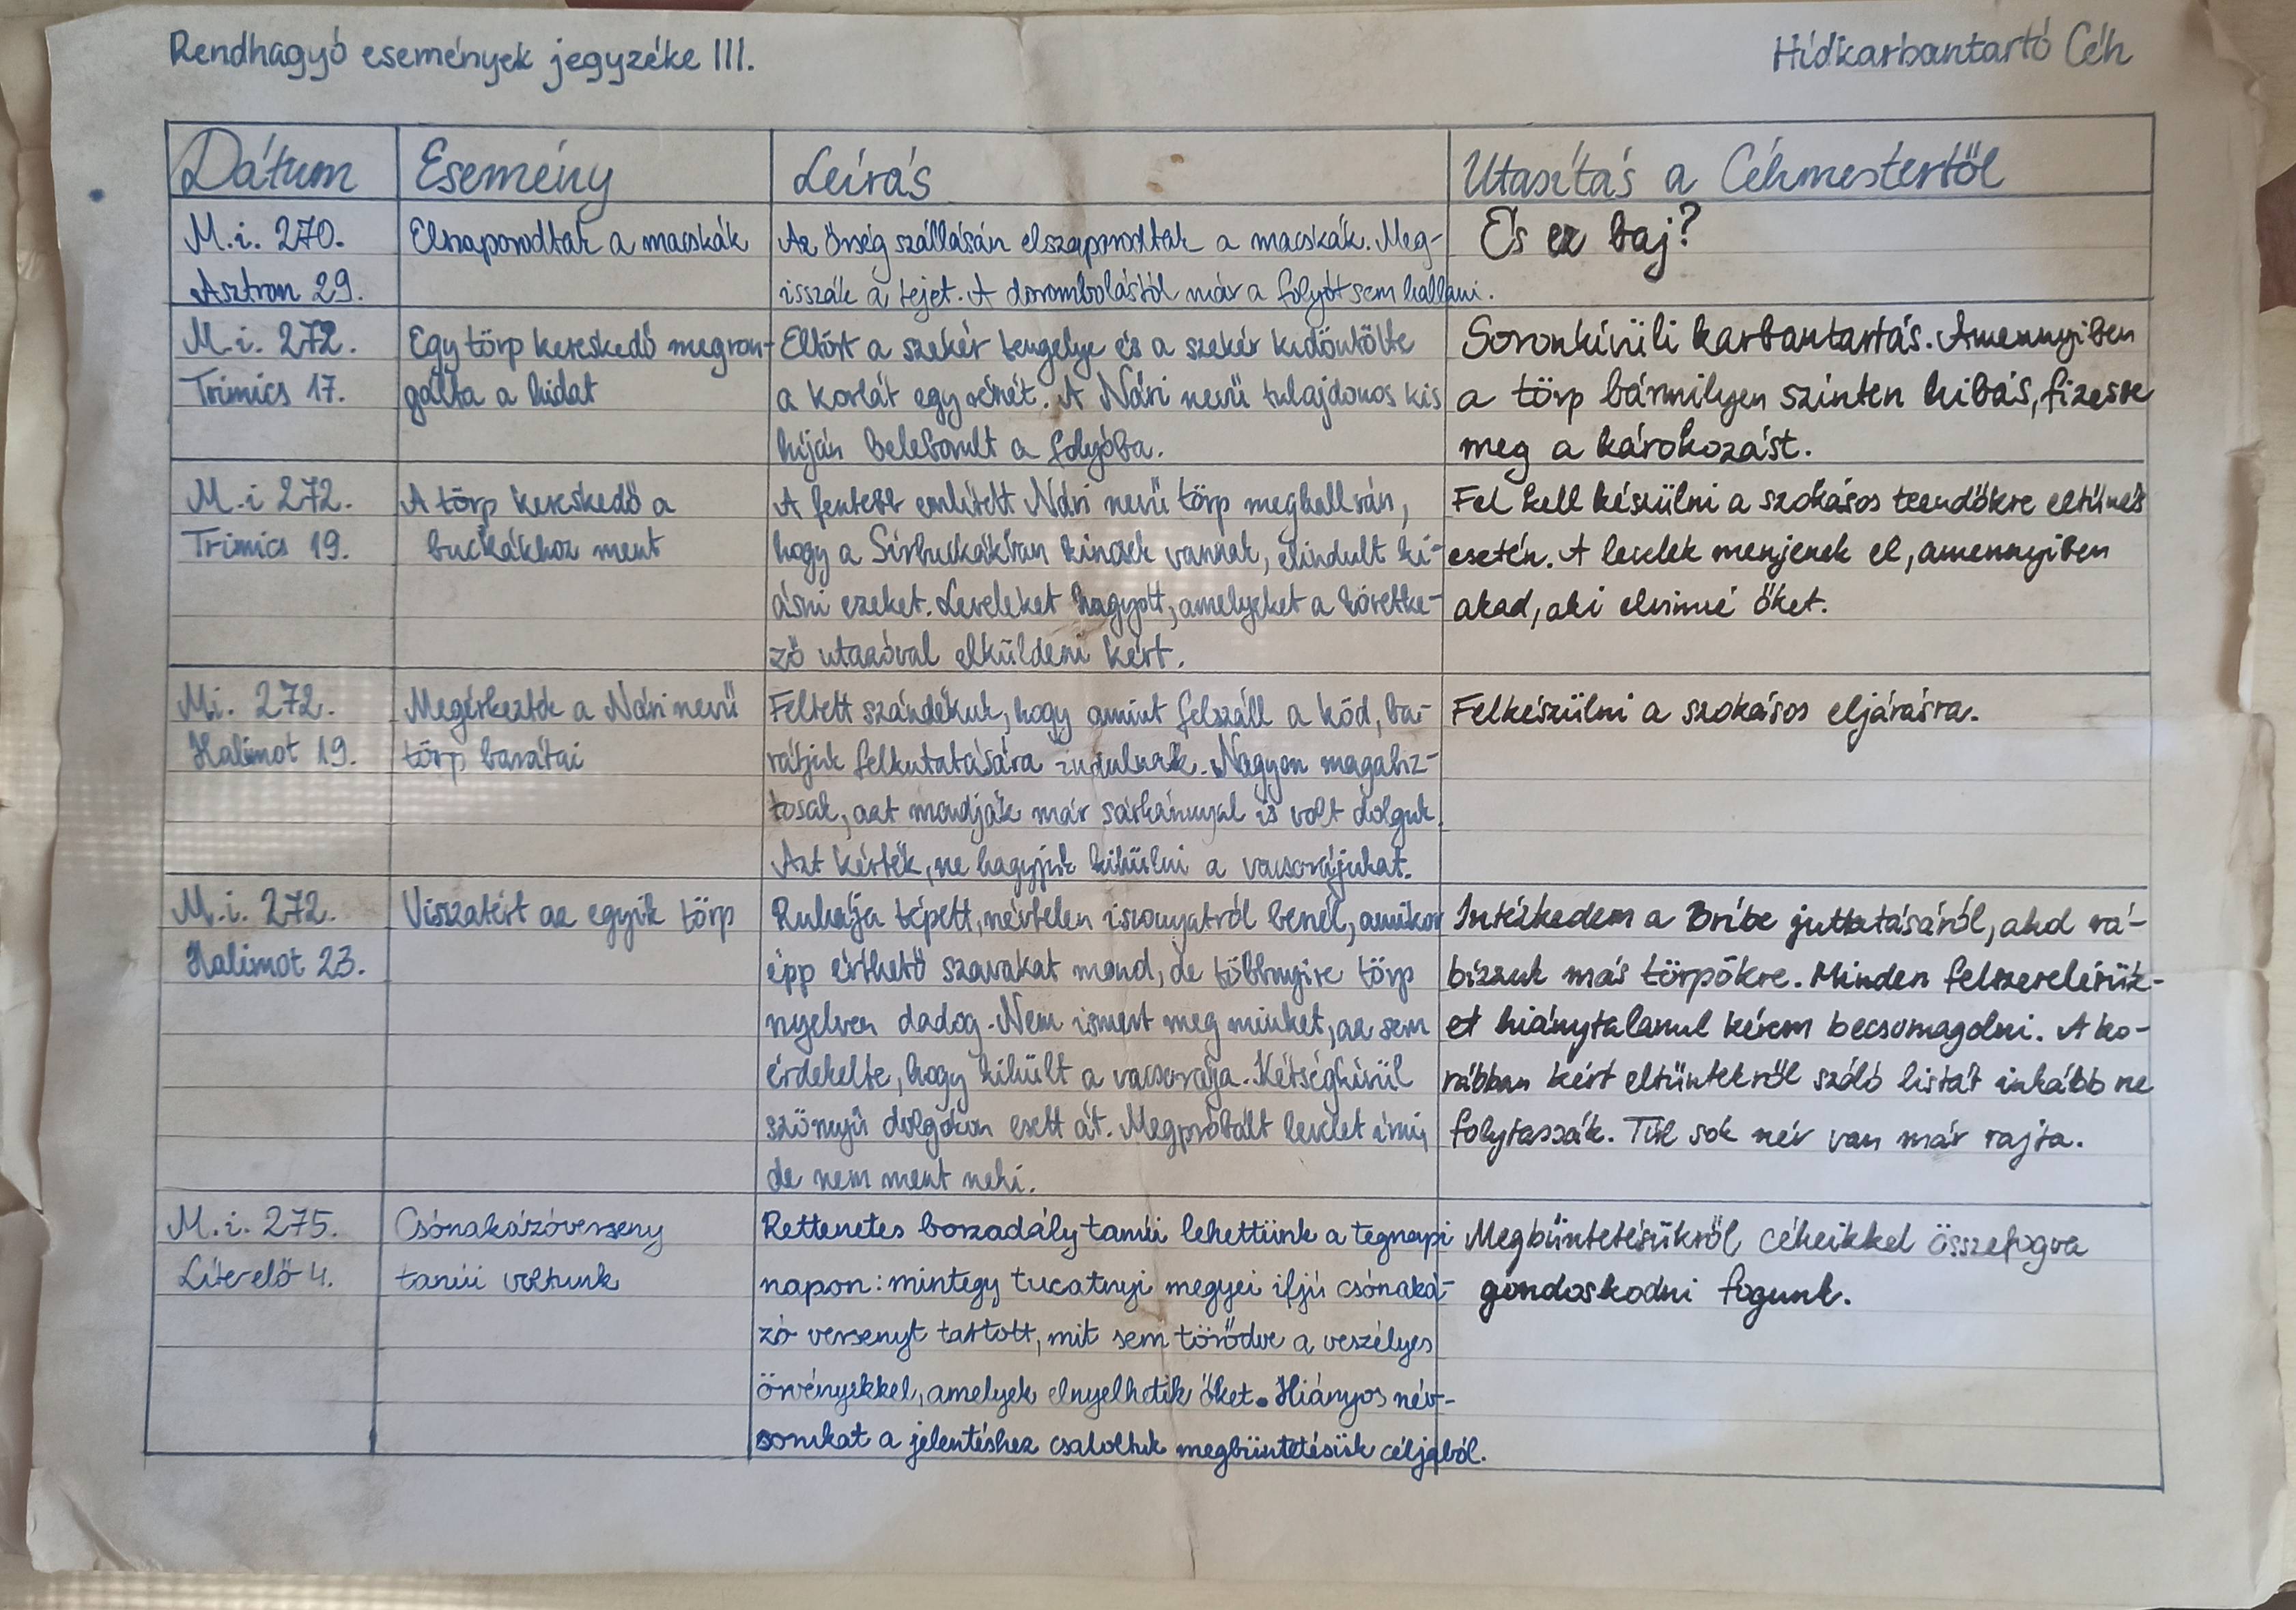 Rendhagyó események jegyzéke III.
Hídkarbantartó Céh
Dátum
Esemény
Leírás
Utasítás a Céhmestertől
M.i. 270.
Asztron 29.
Elszaporodtak a macskák
Az őrség szállásán elszaporodtak a macskák. Meg-
isszák a tejet. A dorombolástól már a folyót sem hallani.
És ez baj?
M.i. 272.
Trimics 17.
Egy törp kereskedő megron-
gálta a hidat
Eltört a szekér tengelye és a szekér kidöntötte
a korlát egy részét. A Nári nevű tulajdonos kis
híján beleborult a folyóba.
Soronkívüli karbantartás. Amennyiben
a törp bármilyen szinten hibás, fizesse
meg a károkozást.
M.i 272.
Trimics 19.
A törp kereskedő a
buckákhoz ment
A fentebb említett Nári nevű törp meghallván,
hogy a Sírbuckákban kincsek vannak, elindult ki-
ásni ezeket. Leveleket hagyott, amelyeket a követke-
ző utazóval elküldeni kért.
Fel kell készülni a szokásos teendőkre eltűnés
esetén. A levelek menjenek el, amennyiben
akad, aki elvinné őket.
M.i. 272.
Halimot 19.
Megérkeztek a Nári nevű
törp barátai
Feltett szándékuk, hogy amint felszáll a köd, ba-
rátjuk felkutatására indulnak. Nagyon magabiz-
tosak, azt mondják már sárkánnyal is volt dolguk.
Azt kérték, ne hagyjuk kihűlni a vacsorájukat.
Felkészülni a szokásos eljárásra.
M.i. 272.
Halimot 23.
Visszatért az egyik törp
Ruhája tépett, névtelen iszonyatról beszél, amikor
épp érthető szavakat mond, de többnyire törp
nyelven dadog. Nem ismert meg minket, az sem
érdekelte, hogy kihűlt a vacsorája. Kétségkívül
szörnyű dolgokon esett át. Megpróbált levelet írni,
de nem ment neki.
Intézkedem a Bríbe juttatásáról, ahol rá-
bízzuk más törpökre. Minden felszerelésük-
et hiánytalanul kérem becsomagolni. A ko-
rábban kért eltűntekről szóló listát inkább ne
folytassák. Túl sok név van már rajta.
M.i. 275.
Líterelő 4.
Csónakázóverseny
tanúi voltunk
Rettenetes borzadály tanúi lehettünk a tegnapi
napon: mintegy tucatnyi megyei ifjú csónaká-
zó versenyt tartott, mit sem törődve a veszélyes
örvényekkel, amelyek elnyelhetik őket. Hiányos név-
sorukat a jelentéshez csatoltuk megbüntetésük céljából.
Megbüntetésükről céheikkel összefogva
gondoskodni fogunk.